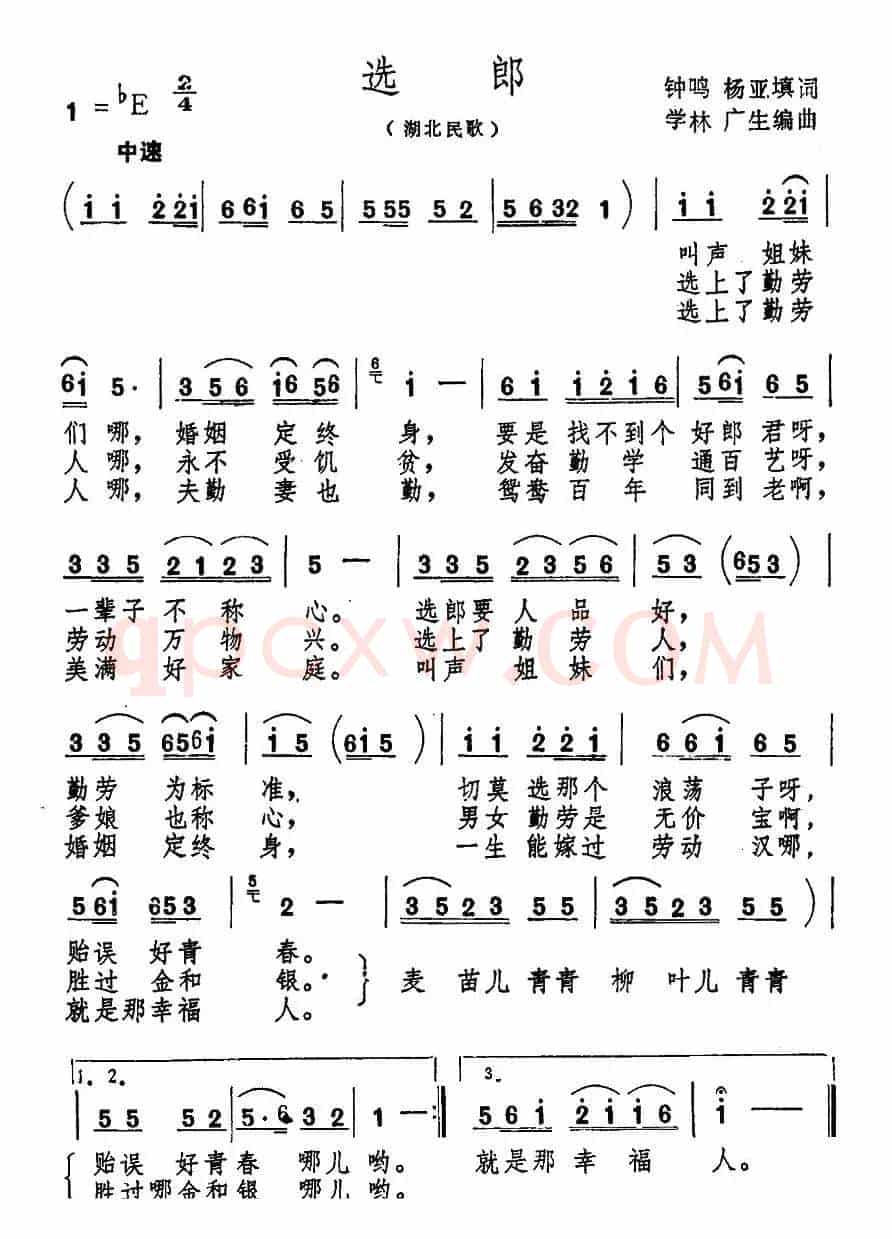 选 郎
1 = ♭E 2/4
（湖北民歌）
钟鸣 杨亚填词
学林 广生编曲
中速
( i i 2 2i | 6 6i 6 5 | 5 55 5 2 | 5 632 1 ) | i i 2 2i |
叫声 姐妹
选上了勤劳
选上了勤劳
6i 5· | 3 5 6 i6 56 | 6 i — | 6 i i 2 i 6 | 5 6i 6 5 |
们哪，婚姻 定终 身， 要是找不到个 好郎 君呀，
人哪，永不 受饥 贫， 发奋勤 学 通百 艺呀，
人哪，夫勤 妻也 勤， 鸳鸯百 年 同到 老啊，
3 3 5 2 1 2 3 | 5 — | 3 3 5 2 3 5 6 | 5 3 ( 653 ) |
一辈子 不 称 心。 选郎要 人 品 好，
劳动 万 物 兴。 选上了 勤 劳 人，
美满 好 家 庭。 叫声 姐 妹 们，
qpcxw.COM
3 3 5 656i | i 5 ( 6i5 ) | i i 2 2i | 6 6 i 6 5 |
勤劳 为标 准， 切莫选那个 浪荡 子呀，
爹娘 也称 心， 男女勤劳是 无价 宝啊，
婚姻 定终 身， 一生 能嫁过 劳动 汉哪，
5 6i 653 | 5 2 — | ( 3 5 2 3 5 5 | 3 5 2 3 5 5 ) |
贻误 好青 春。
胜过 金和 银。 麦 苗儿 青青 柳 叶儿 青青
就是那幸福 人。
1. 2.
3.
5 5 5 2 | 5· 6 3 2 | 1 — :| 5 6 i 2 i i 6 | i — ‖
贻误 好青春 哪儿哟。 就是那 幸 福 人。
胜过哪金和银 哪儿哟。